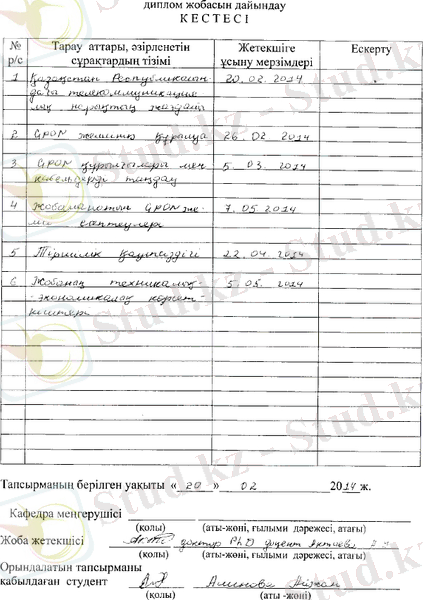 диплом жобасын дайындау
КЕСТЕСІ
№ р/с
Тарау аттары, әзірленетін сұрақтардың тізімі
Жетекшіге ұсыну мерзімдері
Ескерту
1 Қазақстан Республикасын 20.02.2014
дағы телекоммуникация
лық нарықтың жағдайы
2 GPON желісінің құрылуы 26.02.2014
3 GPON құрылғылары мен 5.03.2014
кабельдерді таңдау
4 Жобаланатын GPON же- 7.05.2014
лісі есептеулері
5 Тіршілік қауіпсіздігі 22.04.2014
6 Жобаның техникалық- 5.05.2014
-экономикалық көрсет-
кіштері
Тапсырманың берілген уақыты « 20 » 02 2014 ж.
Кафедра меңгерушісі
(қолы) (аты-жөні, ғылыми дәрежесі, атағы)
Жоба жетекшісі доктор PhD доцент
(қолы) (аты-жөні, ғылыми дәрежесі, атағы)
Орындалатын тапсырманы
қабылдаған студент Аминова
(қолы) (аты -жөні)
Stud.kz - Stud.kz